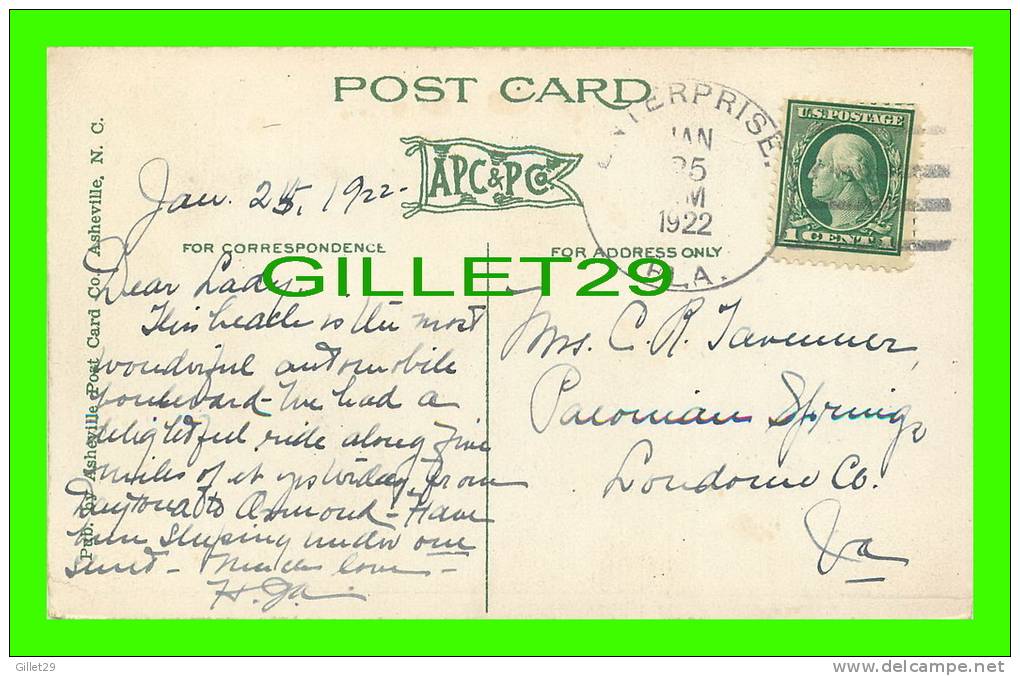 POST CARD
APC&PCo
ENTERPRISE.
JAN
25
M
1922
FLA.
U.S. POSTAGE
1 CENT 1
Pub. by Asheville Post Card Co., Asheville, N. C.
Jan. 25, 1922
FOR CORRESPONDENCE
FOR ADDRESS ONLY
GILLET29
Dear Lady.
This beach is the most
wonderful automobile
boulevard - We had a
delightful ride along five
miles of it yesterday, from
Daytona to Ormond - Have
been sleeping under one
- Much love -
Mrs. C. R. Tavenner,
Paeonian Springs,
Loudoun Co.
Va
Gillet29
http://www.delcampe.net